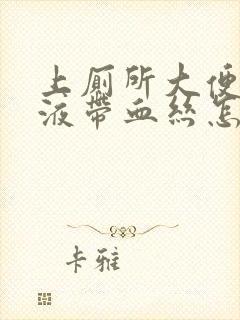 上厕所大便
液带血丝怎
卡雅